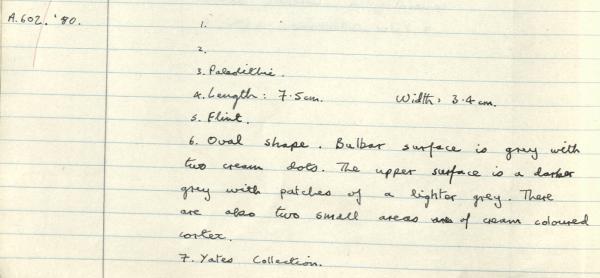 A.602.'80.
1.
2.
3. Paleolithic.
4. Length: 7.5cm. Width: 3.4cm.
5. Flint.
6. Oval shape. Bulbar surface is grey with
two cream dots. The upper surface is a darker
grey with patches of a lighter grey. There
are also two small areas of cream coloured
cortex.
7. Yates Collection.